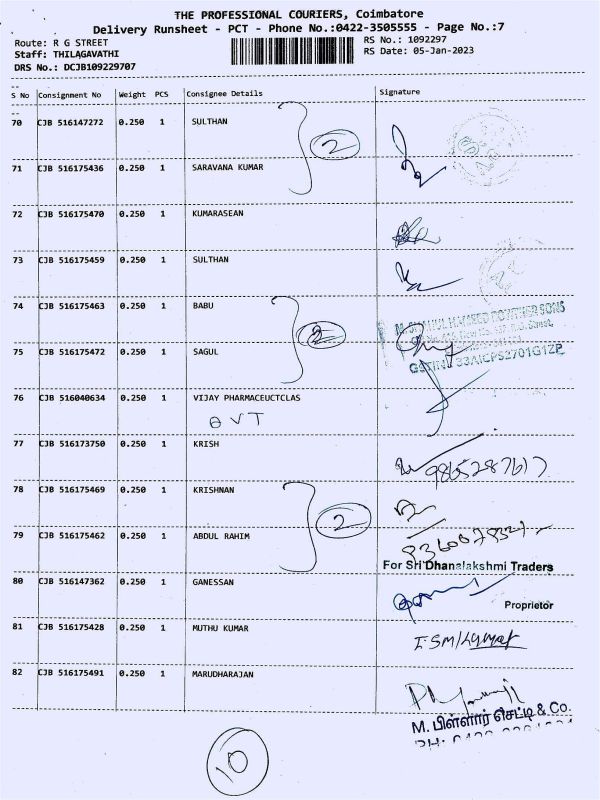 THE PROFESSIONAL COURIERS, Coimbatore
Delivery Runsheet - PCT - Phone No.:0422-3505555 - Page No.:7
Route: R G STREET
RS No.: 1092297
Staff: THILAGAVATHI
RS Date: 05-Jan-2023
DRS No.: DCJB109229707
S No Consignment No Weight PCS Consignee Details Signature
70 CJB 516147272 0.250 1 SULTHAN
2
71 CJB 516175436 0.250 1 SARAVANA KUMAR
72 CJB 516175470 0.250 1 KUMARASEAN
73 CJB 516175459 0.250 1 SULTHAN
74 CJB 516175463 0.250 1 BABU
2
75 CJB 516175472 0.250 1 SAGUL
GSTIN: 33AICPS2701G1ZP
76 CJB 516040634 0.250 1 VIJAY PHARMACEUCTCLAS
77 CJB 516173750 0.250 1 KRISH
9865287617
78 CJB 516175469 0.250 1 KRISHNAN
2
79 CJB 516175462 0.250 1 ABDUL RAHIM
For Sri Dhanalakshmi Traders
80 CJB 516147362 0.250 1 GANESSAN
Proprietor
81 CJB 516175428 0.250 1 MUTHU KUMAR
82 CJB 516175491 0.250 1 MARUDHARAJAN
M. பிள்ளார் செட்டி & Co.
10